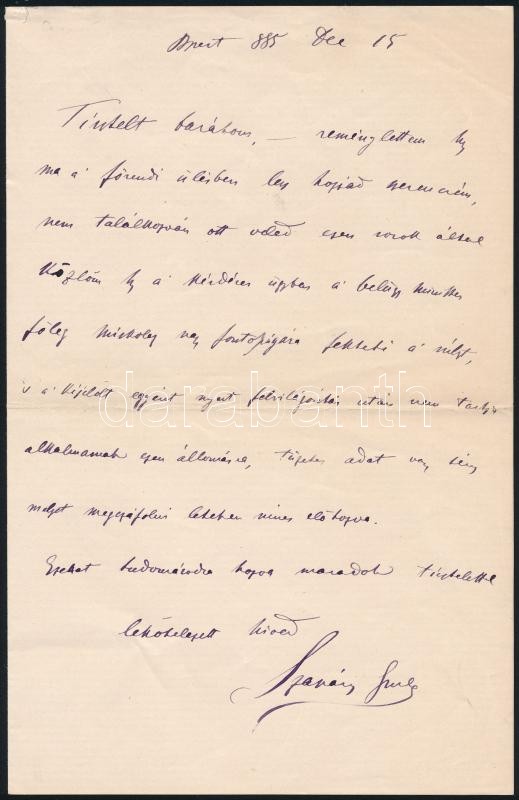 Bpest 885 Dec 15
Tisztelt barátom, — reménylettem hy
ma a' főrendi ülésben lesz hozzád szerencsém,
nem találkozván ott veled ezen sorok által
közlöm hy a' kérdéses ügyben a' belügy minister
főleg Miskolcz nagy fontosságára fekteti a' súlyt,
's a' kijelölt egyént nyert felvilágosítás után nem tartja
alkalmasnak ezen állomásra, tüzetes adat vagy tény
melyet megczáfolni lehetne nincs előhozva.
Ezeket tudomásodra hozva maradok tisztelettel
lekötelezett hived
Szapáry Gyula
darabanth